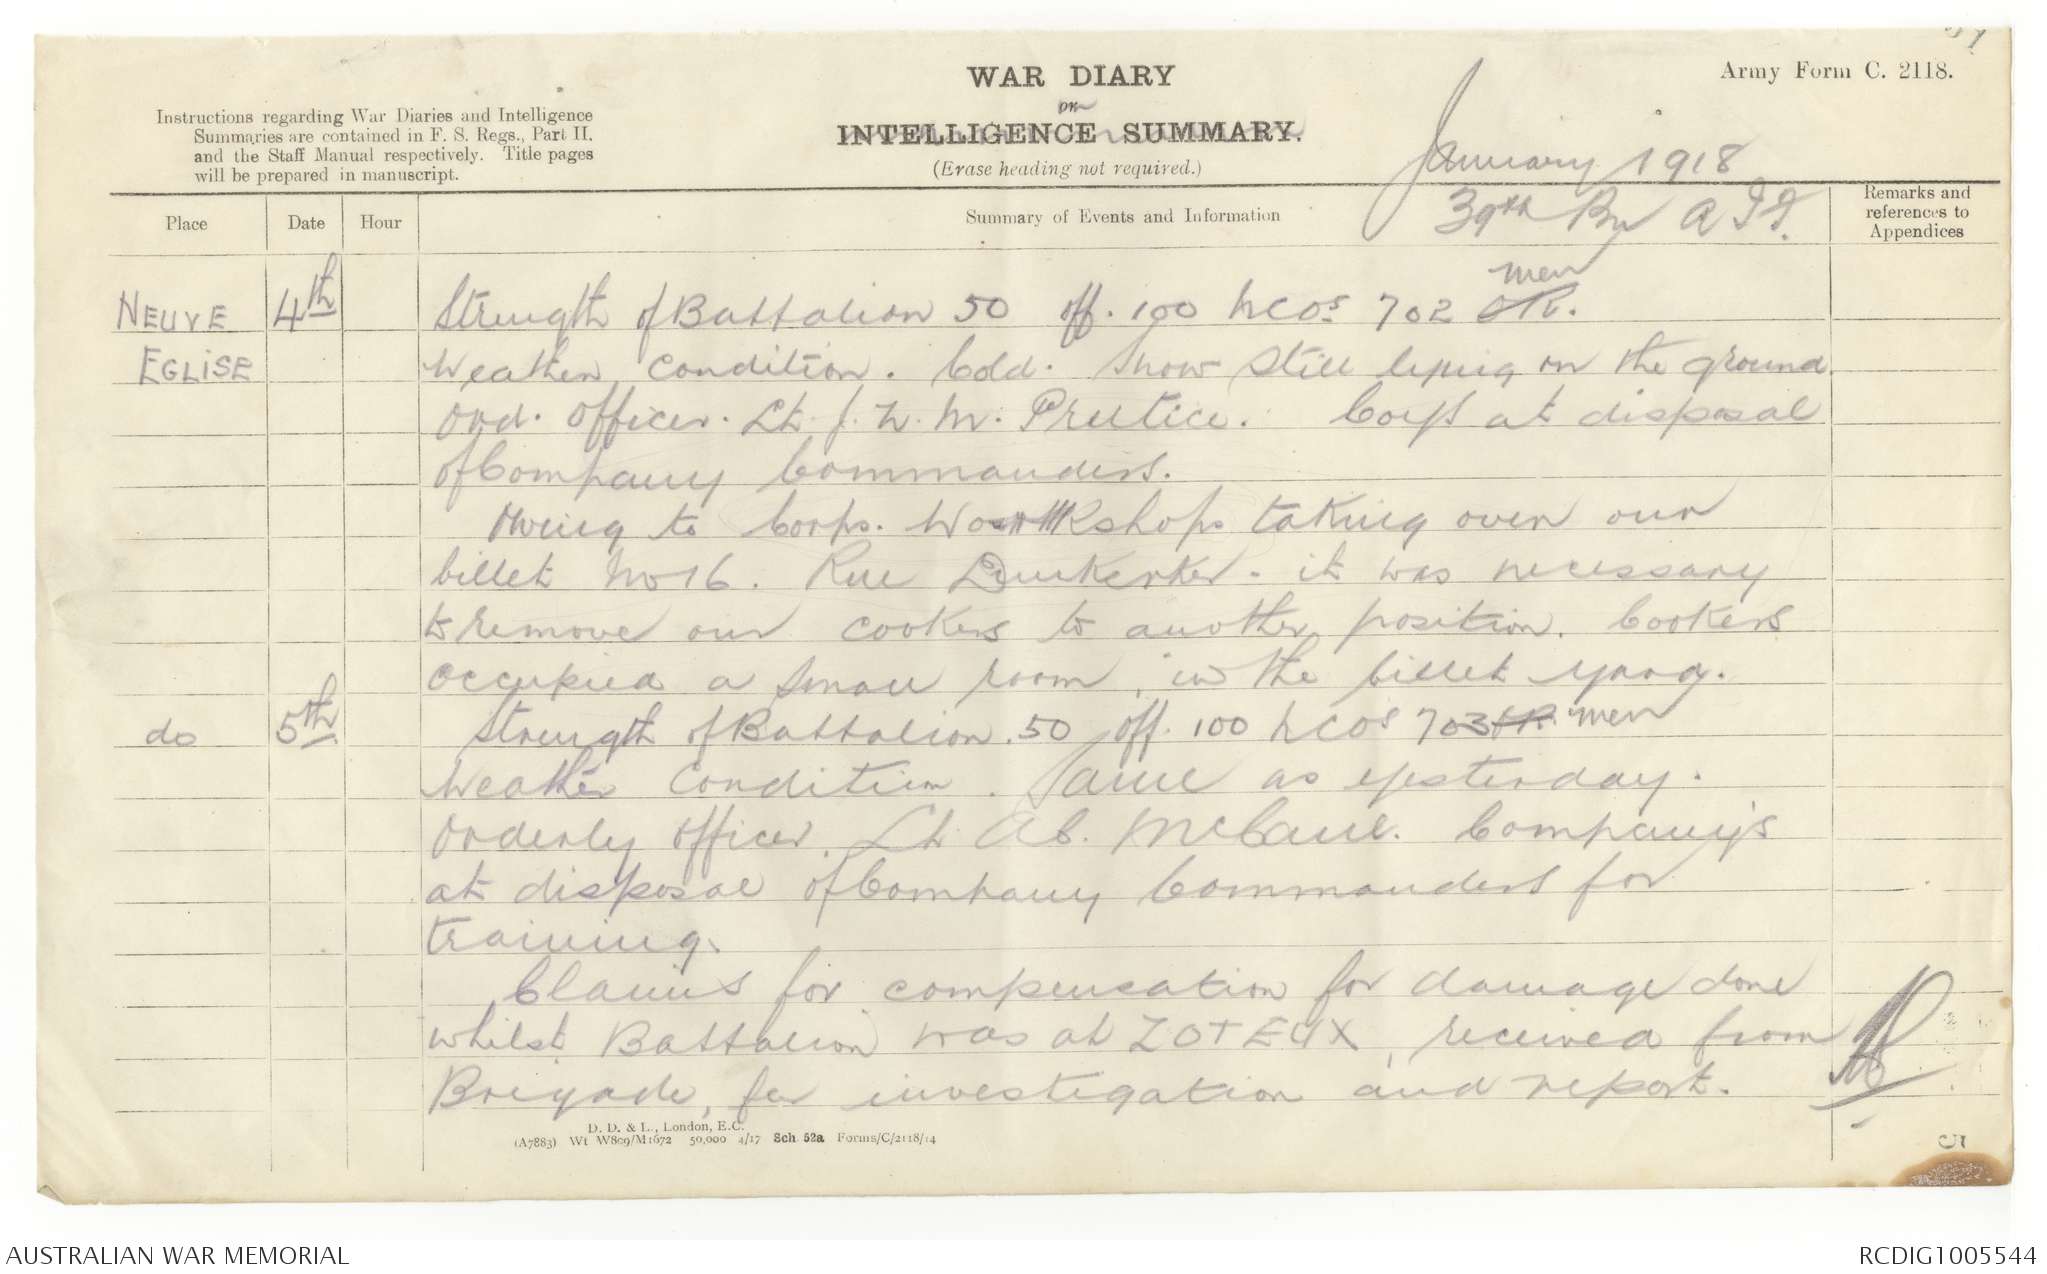 WAR DIARY
or
INTELLIGENCE SUMMARY.
(Erase heading not required.)
Army Form C. 2118.
Instructions regarding War Diaries and Intelligence
Summaries are contained in F. S. Regs., Part II.
and the Staff Manual respectively. Title pages
will be prepared in manuscript.
January 1918
39th Bn A.I.F.
Place
Date
Hour
Summary of Events and Information
Remarks and
references to
Appendices
NEUVE EGLISE
4th
Strength of Battalion 50 off. 100 NCOs 702 OR. men
Weather condition. Cold. Snow still lying on the ground.
Ord. Officer. Lt. J. W. Prentice. Coys at disposal
of Company Commanders.
Owing to Corps. Workshops taking over our
billet No 16. Rue Dunkerke. it was necessary
to remove our cookers to another position. Cookers
occupied a small room in the billet yard.
do
5th
Strength of Battalion. 50 off. 100 NCOs 703 OR men
Weather Condition. Same as yesterday.
Orderly Officer. Lt. McCaul. Company's
at disposal of Company Commanders for
training.
Claims for compensation for damage done
whilst Battalion was at ZOTEUX, received from
Brigade, for investigation and report.
D. D. & L., London, E.C.
(A7883) Wt W809/M1672 50,000 4/17 Sch 52a Forms/C/2118/14
5
AUSTRALIAN WAR MEMORIAL
RCDIG1005544